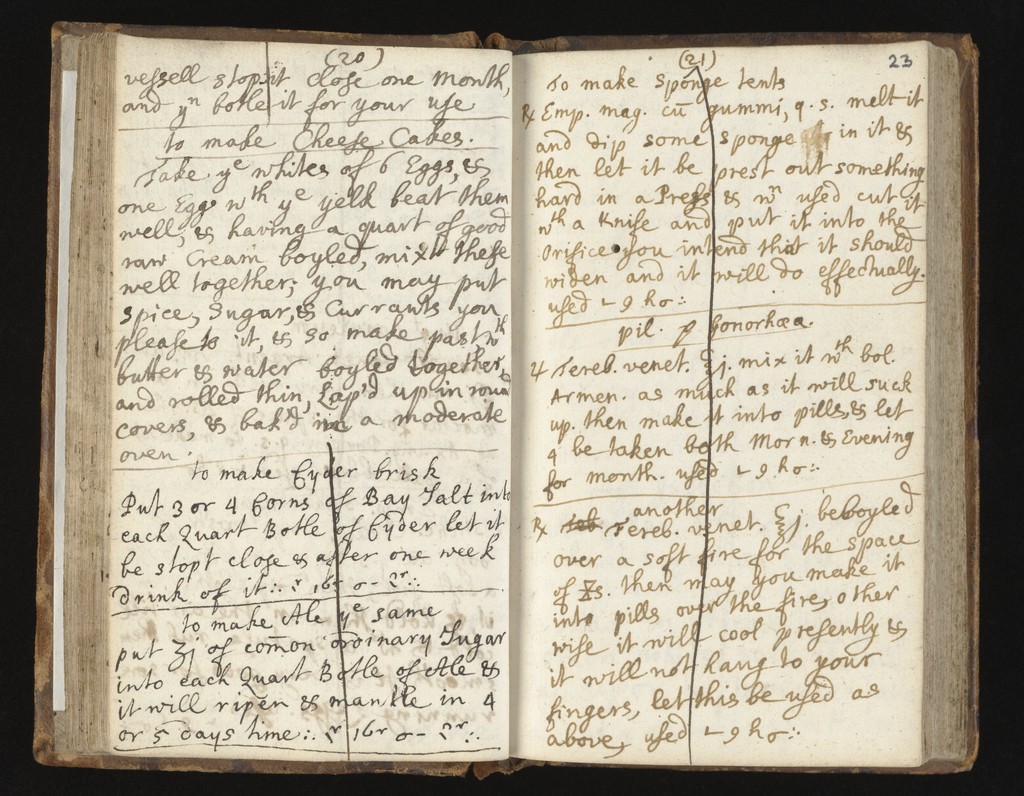 (20)
vessell stop it close one month,
and yn botle it for your use
to make Cheese Cakes.
Take ye whites of 6 Eggs, &
one Egg wth ye yelk beat them
well, & having a quart of good
raw Cream boyled, mix these
well together; you may put
spice, Sugar, & Currants you
please to it, & so make past wth
butter & water boyled together,
and rolled thin, Lap'd up in round
covers, & bak'd in a moderate
oven.
to make Cyder brisk
Put 3 or 4 Corns of Bay Salt into
each Quart Botle of Cyder let it
be stopt close & after one week
drink of it
to make Ale ye same
put ℥j of com̄on ordinary Sugar
into each Quart Botle of Ale &
it will ripen & mantle in 4
or 5 days time
(21)
23
To make sponge tents
℞ Emp. mag. cū gummi, q. s. melt it
and dip some sponge in it &
then let it be prest out something
hard in a Press & wn used cut it
wth a Knife and put it into the
Orifice you intend that it should
widen and it will do effectually.
used
pil. Gonorhœa.
Tereb. venet. ℥j. mix it wth bol.
Armen. as much as it will suck
up. then make it into pills, & let
4 be taken both Morn. & Evening
for month. used
another
℞ Tereb. venet. ℥j. be boyled
over a soft fire for the space
of then may you make it
into pills over the fire, other
wise it will cool presently &
it will not hang to your
fingers, let this be used as
above, used